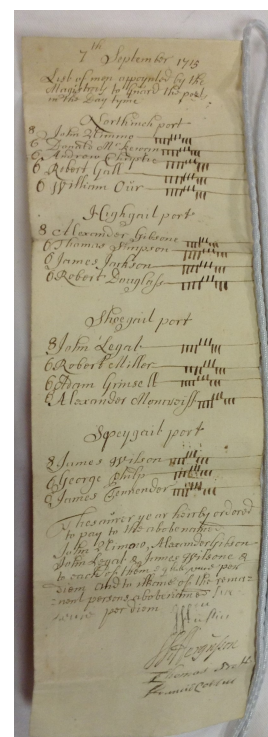 7th September 1713
List of men apoynted by the
Magistrats to guard the port
in the Day tyme
Northinch port
8 John Nimmo
6 Donald McKewan
6 Andrew Chrystie
6 Robert Gall
6 William Our
Highgait port
8 Alexander Gibsone
6 Thomas Simpson
6 James Jackson
6 Robert Douglass
Shoegait port
8 John Legat
6 Robert Miller
6 Adam Grinsell
6 Alexander Moncreiff
Speygait port
8 James Wilson
6 George Philp
6 James
Thesaurer year herby ordered
to pay to the abobenamed
John Nimmo, Alexander Gibson
John Legat & James Wilsone &
to each of them eight pence per
diem and to ilkane of the remanent
persons abobenamed six
pence per diem
Fergusson
Thomas
Francis